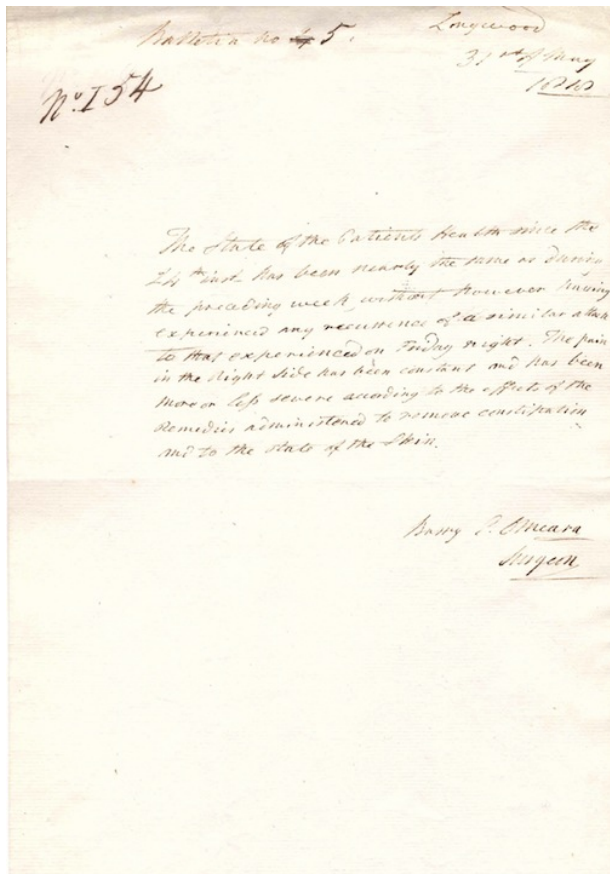 Bulletin no 5.
Longwood
31st of May
1818
No. I 54
The State of the Patients health since the
24th inst. has been nearly the same as during
the preceding week, without however having
experienced any recurrence of a similar attack
to that experienced on Friday night. The pain
in the Right Side has been constant and has been
more or less severe according to the effects of the
Remedies administered to remove constipation
and to the state of the Skin.
Barry E. OMeara
Surgeon